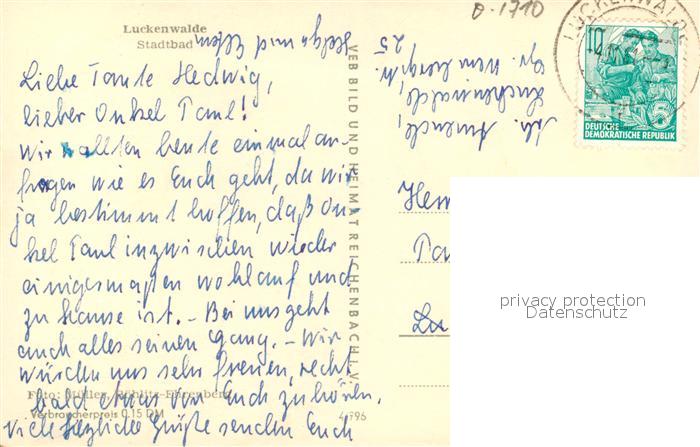 Luckenwalde
Stadtbad
Liebe Tante Hedwig,
lieber Onkel Paul!
Wir wollten heute einmal an-
fragen wie es Euch geht, da wir
ja bestimmt hoffen, daß On-
kel Paul inzwischen wieder
einigermaßen wohlauf und
zu Hause ist. - Bei uns geht
auch alles seinen Gang. - Wir
würden uns sehr freuen, recht
bald etwas von Euch zu hören.
Viele herzliche Grüße senden Euch
Helga und
Foto: Müller,
Verbraucherpreis 0,15 DM
4/796
VEB BILD UND HEIMAT REICHENBACH I. V.
Luckenwalde,
25
LUCKENWALDE
10
DEUTSCHE
DEMOKRATISCHE REPUBLIK
privacy protection
Datenschutz